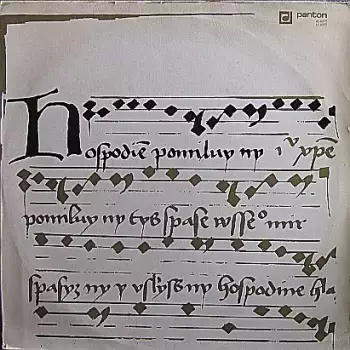 panton
Hospodiē pomiluy ny
pomiluy ny tys spase wsse° mir
spasyz ny y vslyss ny hospodine hla